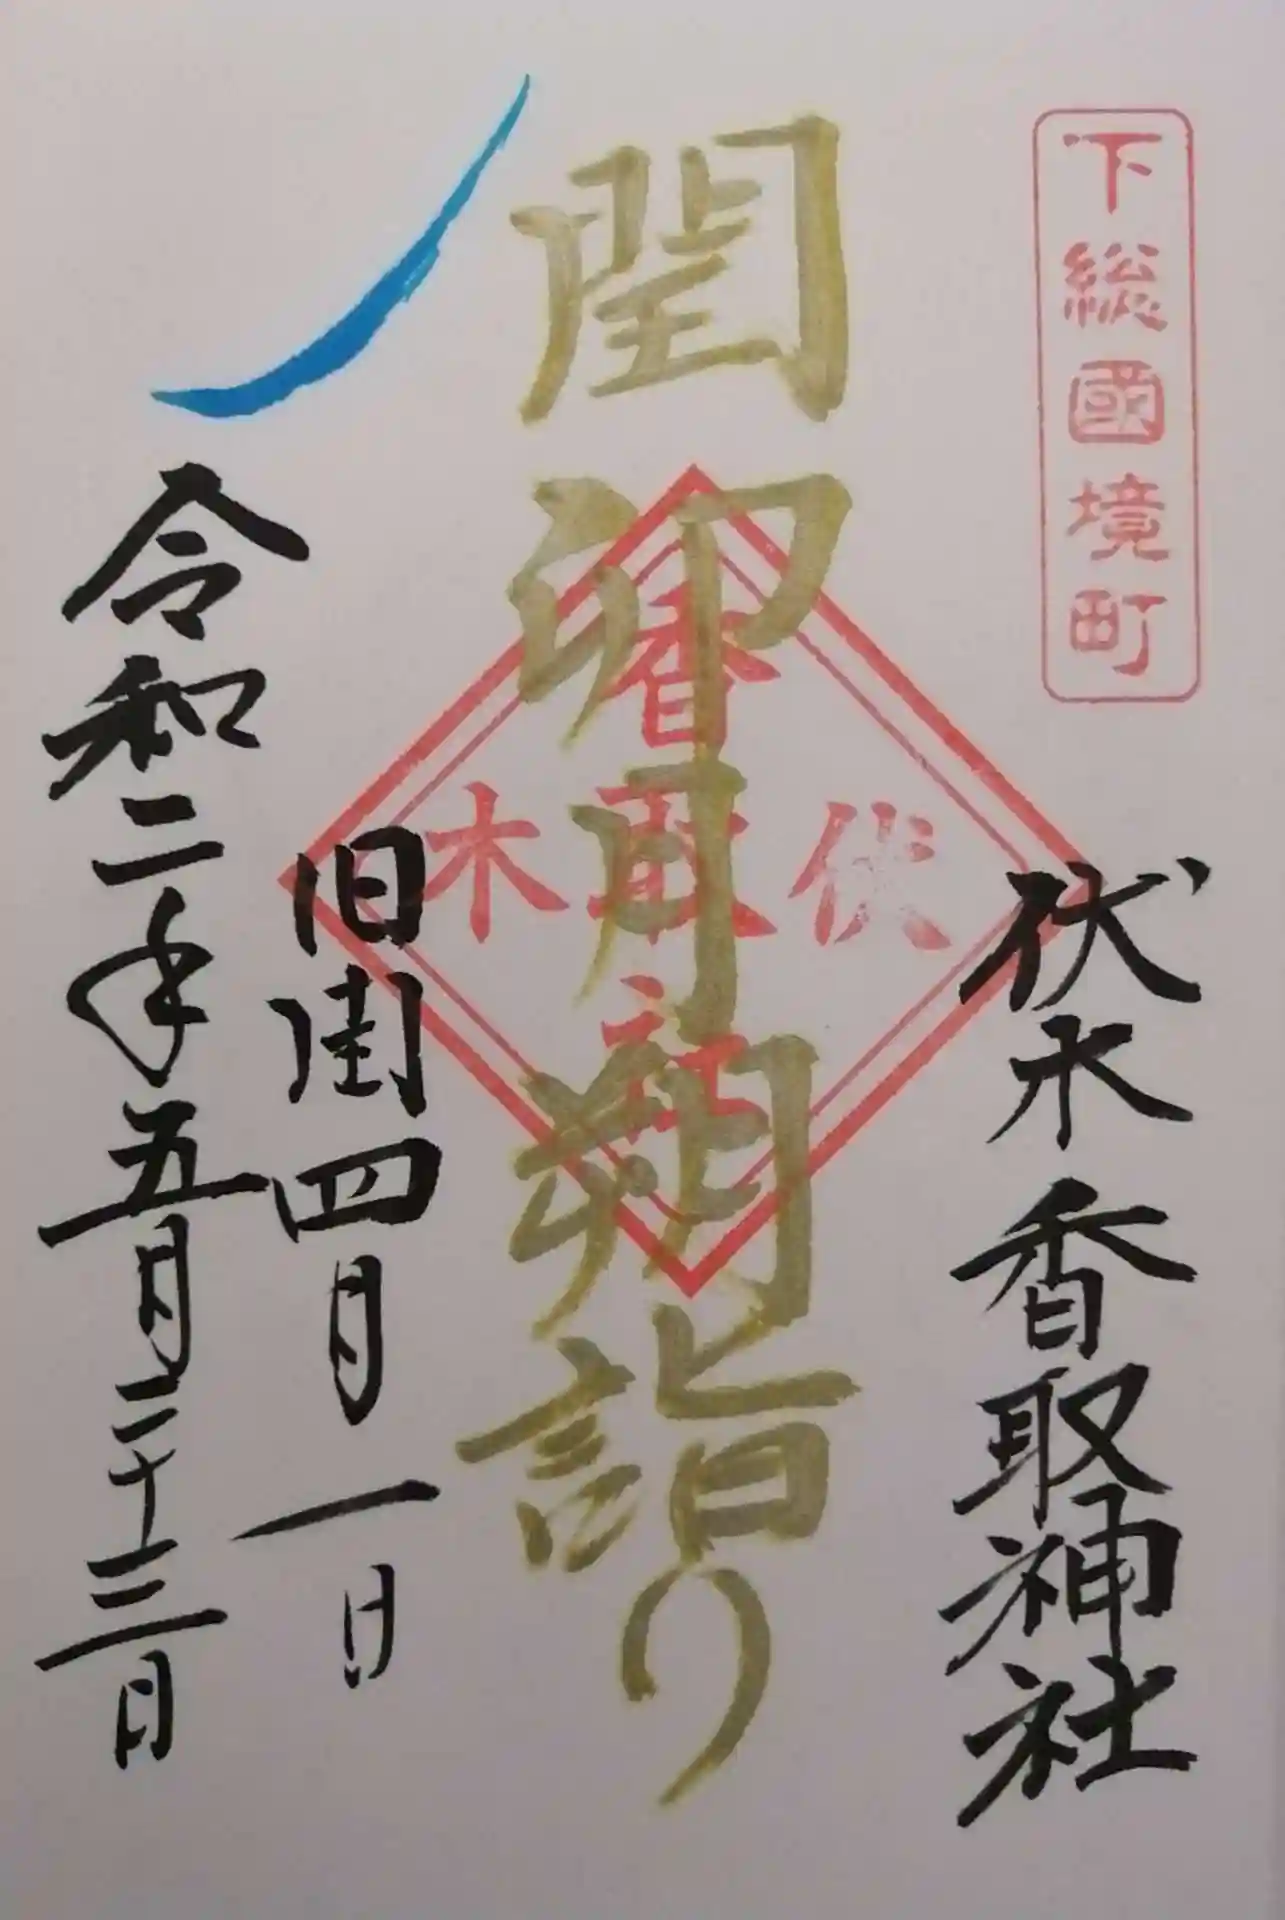 下総國境町
伏木香取神社
閏卯月朔詣り
伏木
香取社
旧閏四月一日
令和二年五月二十三日